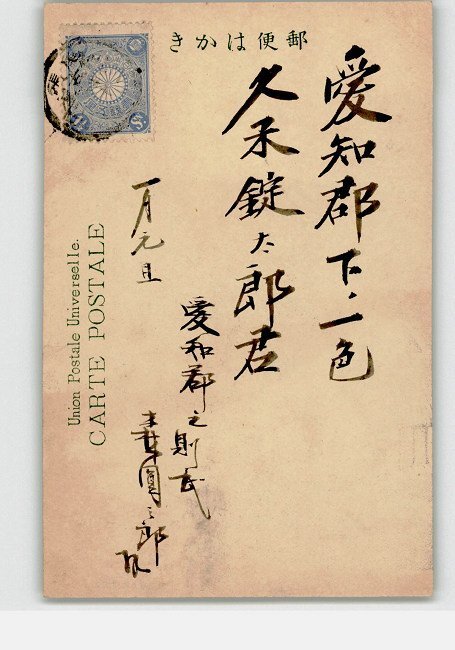 きかは便郵
愛知郡下ノ一色
久禾錠太郎君
一月元旦
愛知郡之則武
圓三郎
Union Postale Universelle.
CARTE POSTALE